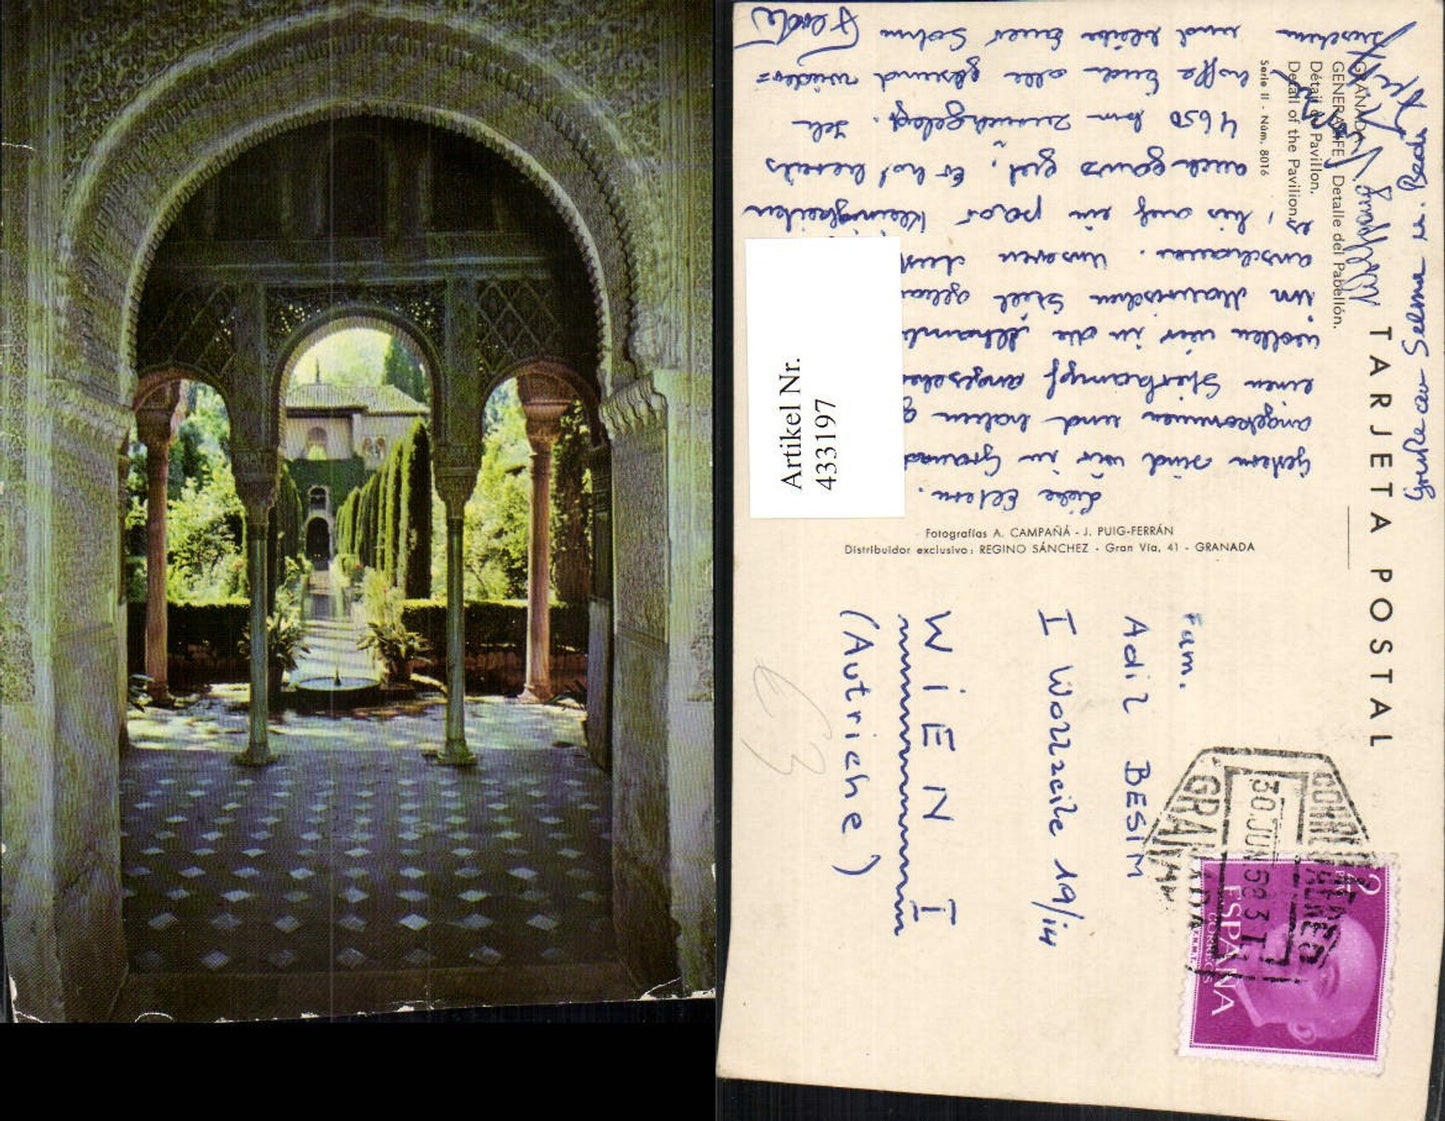 TARJETA POSTAL
GRANADA
GENERALIFE Detalle del Pabellón.
Détail du Pavillon.
Detail of the Pavilion.
Serie II - Núm. 8016
Fotografías A. CAMPAÑÁ - J. PUIG-FERRÁN
Distribuidor exclusivo: REGINO SÁNCHEZ - Gran Vía, 41 - GRANADA
Artikel Nr.
433197
Liebe Eltern.
Gestern sind wir in
angekommen und haben
einen Stierkampf
wollen wir in die
im Maurischen Stil
anschauen. Unseren
es, bis auf ein paar Kleinigkeiten
auch ganz gut. Er hat bereits
4650 km zurückgelegt. Ich
hoffe Euch alle gesund wieder=
zusehen und bleibe Euer Sohn
Grüße an Selma u.
Fam.
Adil BESIM
I Wollzeile 19/14
WIEN I
(Autriche)
CORREO AEREO
30.JUN 59.3 T
GRANADA
2
ESPAÑA
CORREOS